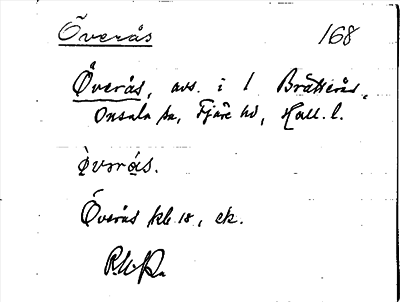 Överås 168
Överås, avs. i 1 Bratterås,
Onsala sn, Fjäre hd, Hall. l.
Överås kbl 18, ek.